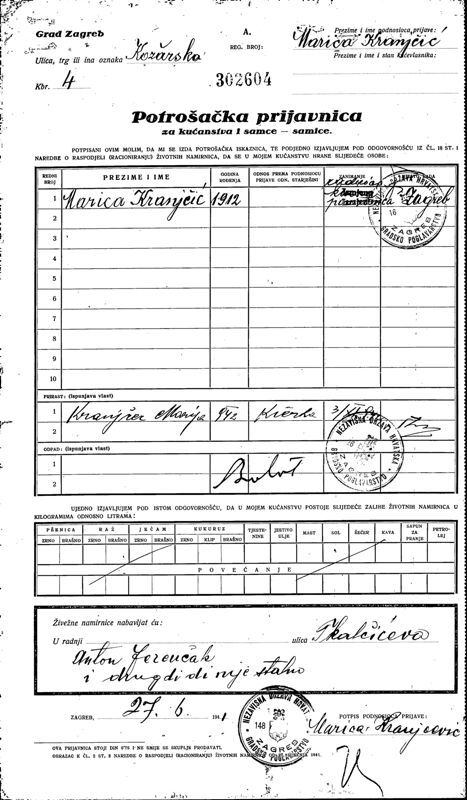 Grad Zagreb
Ulica, trg ili ina oznaka Kožarska
Kbr. 4
A.
REG. BROJ:
302604
Prezime i ime podnosioca prijave:
Marica Kranjčić
Prezime i ime i stan kućevlasnika:
Potrošačka prijavnica
za kućanstva i samce — samice.
POTPISANI OVIM MOLIM, DA MI SE IZDA POTROŠAČKA ISKAZNICA, TE PODJEDNO IZJAVLJUJEM POD ODGOVORNOŠĆU IZ ČL. 18 ST. 1
NAREDBE O RASPODJELI (RACIONIRANJU) ŽIVOTNIH NAMIRNICA, DA SE U MOJEM KUĆANSTVU HRANE SLIJEDEĆE OSOBE:
REDNI BROJ
PREZIME I IME
GODINA ROĐENJA
ODNOS PREMA PODNOSIOCU PRIJAVE ODN. STARJEŠINI
ZANIMANJE
1 Marica Kranjčić 1912 Zagreb
2
3
4
5
6
7
8
9
10
NEZAVISNA DRŽAVA HRVATSKA
GRADSKO POGLAVARSTVO
ZAGREB
16
PRIRAST: (Ispunjava vlast)
1 Marija 942
2
ODPAD: (Ispunjava vlast)
1
2
NEZAVISNA DRŽAVA HRVATSKA
GRADSKO POGLAVARSTVO
ZAGREB
UJEDNO IZJAVLJUJEM POD ISTOM ODGOVORNOŠĆU, DA U MOJEM KUĆANSTVU POSTOJE SLIJEDEĆE ZALIHE ŽIVOTNIH NAMIRNICA U
KILOGRAMIMA ODNOSNO LITRAMA:
PŠENICA RAŽ JEČAM KUKURUZ TJESTENINE JESTIVO ULJE MAST SOL ŠEĆER KAVA SAPUN ZA PRANJE PETROLEJ
ZRNO BRAŠNO ZRNO BRAŠNO ZRNO BRAŠNO ZRNO KLIP BRAŠNO
POVEĆANJE
Živežne namirnice nabavljat ću:
U radnji ulica Tkalčićeva
Anton Ferenčak
i drugdi di nije stalno
ZAGREB, 27. 6 194 1
NEZAVISNA DRŽAVA HRVATSKA
148
ZAGREB
GRADSKO POGLAVARSTVO
POTPIS PODNOSIOCA PRIJAVE:
Marica Kranjcević
OVA PRIJAVNICA STOJI DIN 0'75 I NE SMIJE SE SKUPLJE PRODAVATI.
OBRAZAC K ČL. 5 ST. 2 NAREDBE O RASPODJELI (RACIONIRANJU) ŽIVOTNIH NAMIRNICA 1941.